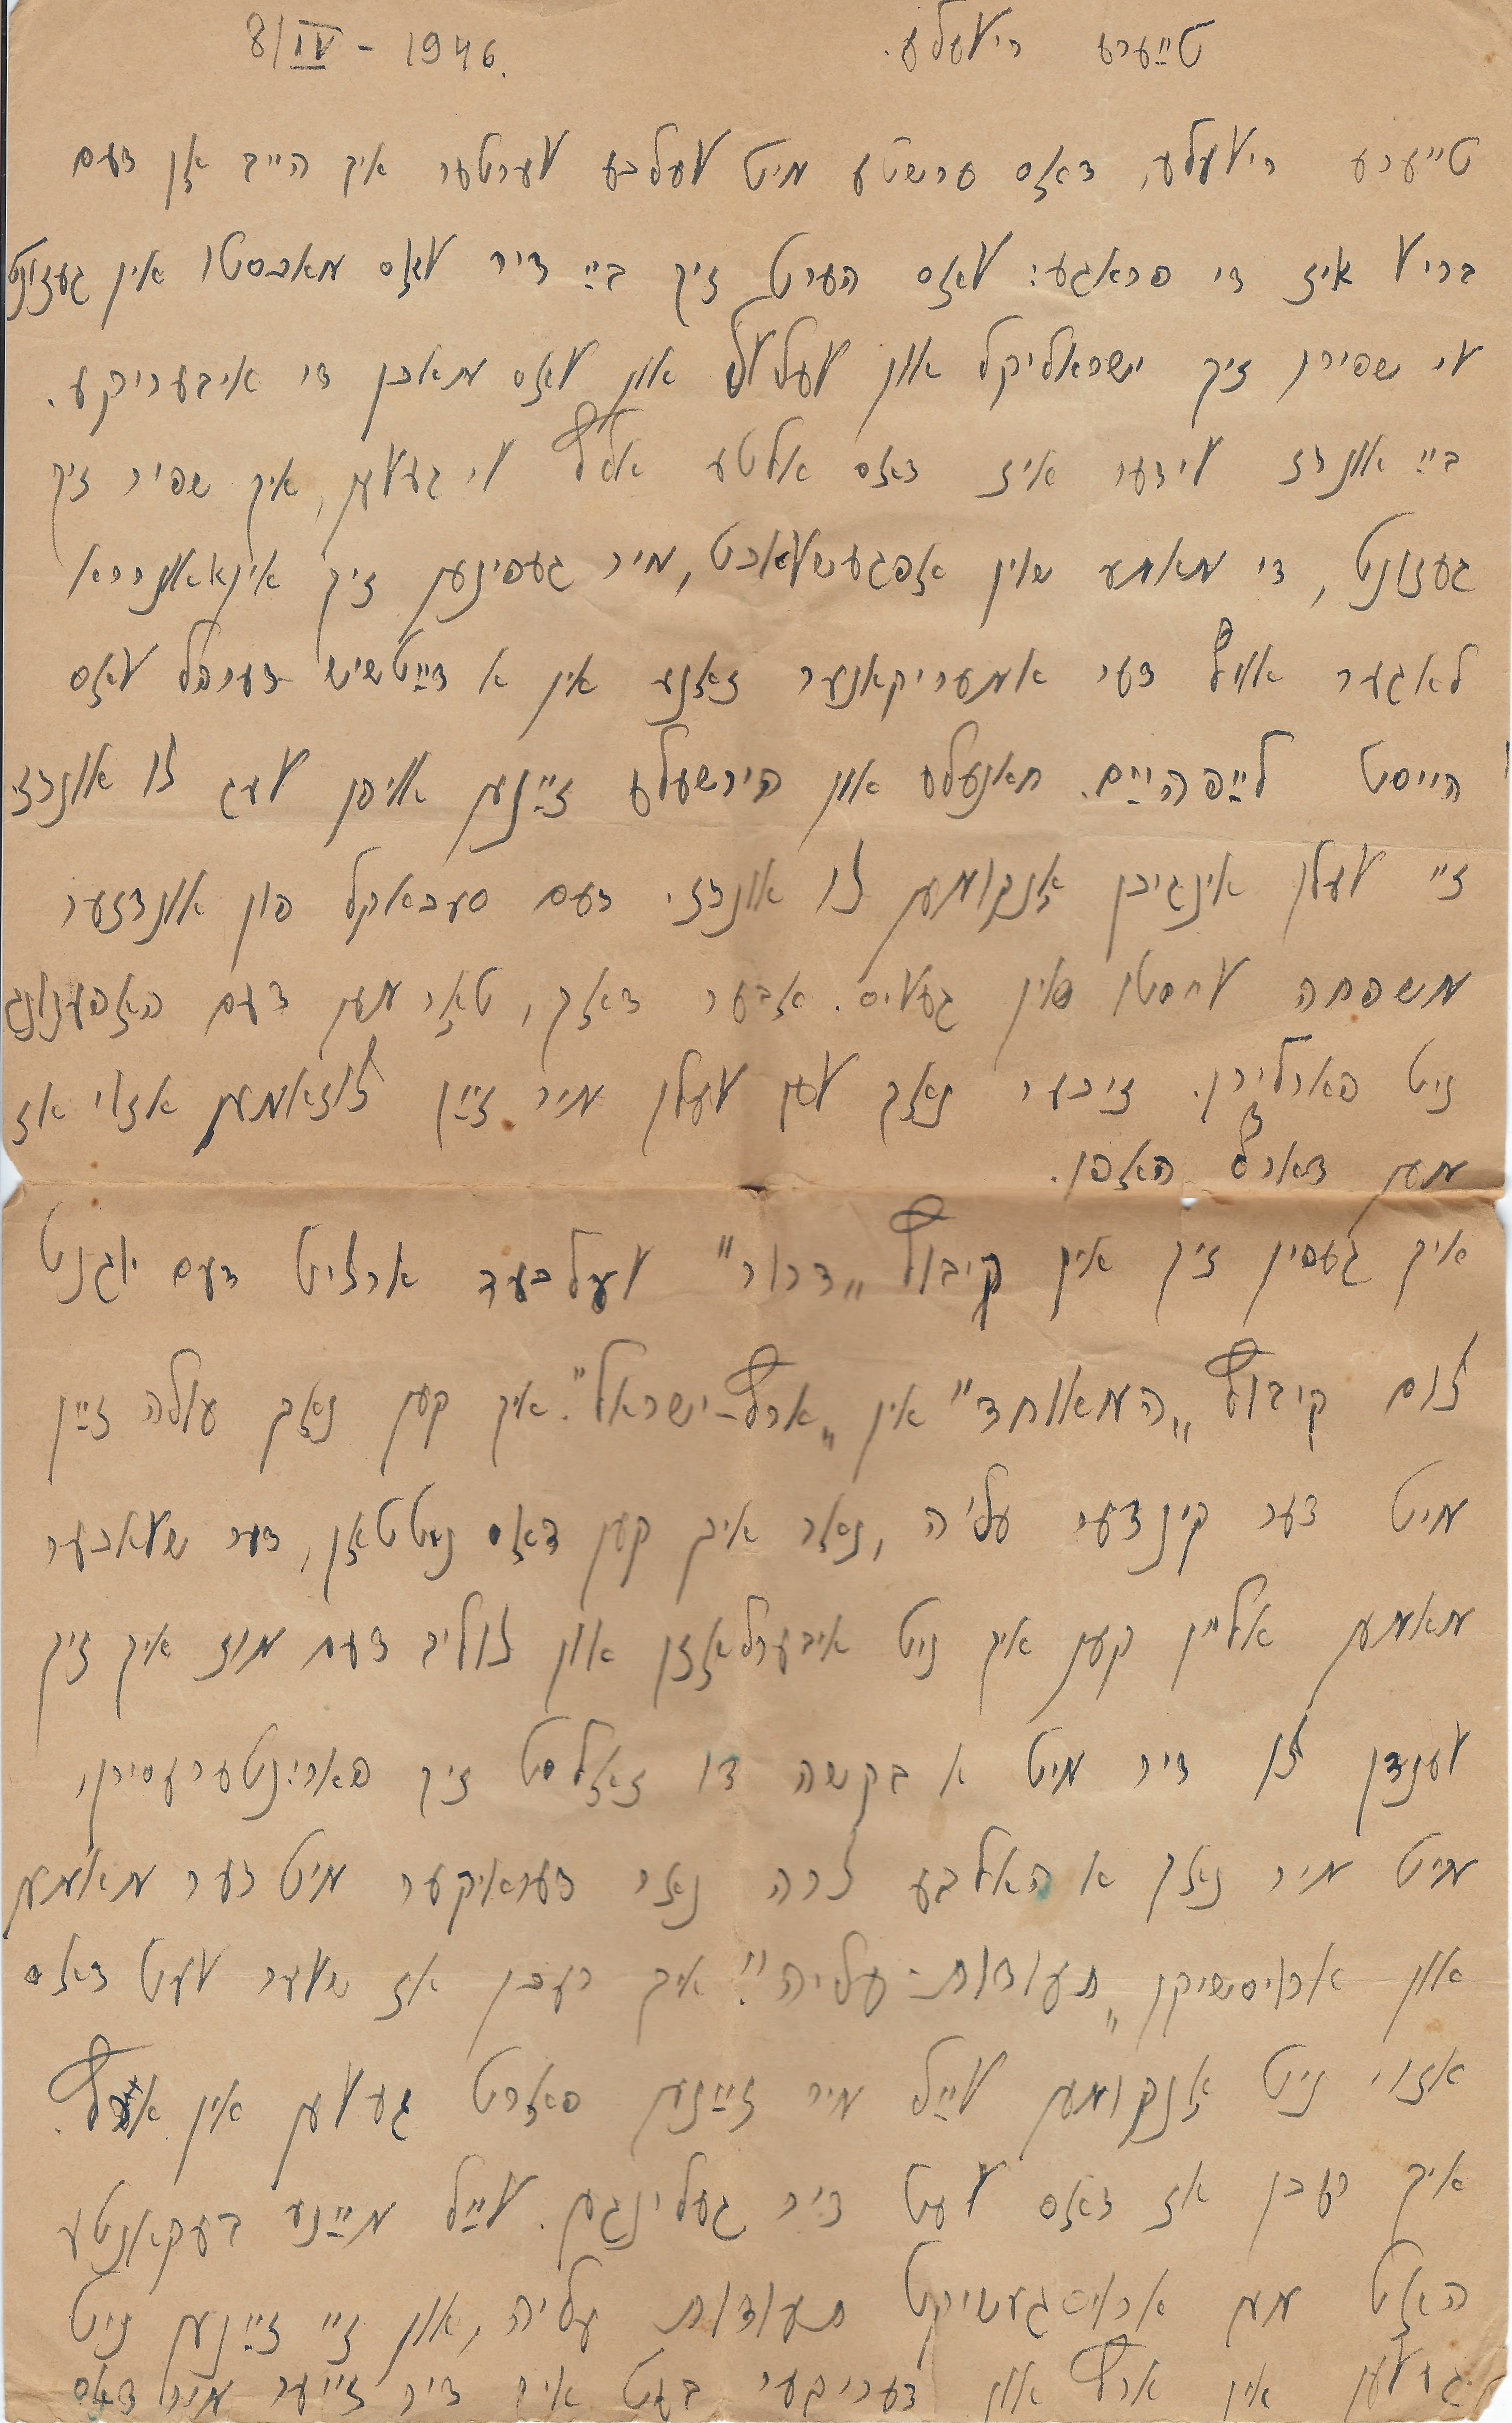 8/IV – 1946.
טײַערע ריװעלע.
טייערע ריװעלע, דאָס ערשטע מיט װעלכע װערטער איך הייב אָן דעם
בריװ איז די פראגע: װאָס הערט זיך בײַ דיר װאָס מאכסטו אין געזונט
װי שפירן זיך ישראליקל און װעלװל און װאָס מאכן די איבעריקע.
בײַ אונדז װידער איז דאָס אלטע אלץ װי געװען, איך שפיר זיך
געזונט, די מאמע שוין אָפגעשװאכט, מיר געפינען זיך אין אונררא
לאגער אױף דער אמעריקאנער זאנע אין א דײַטשיש דערפל װאָס
הייסט לײַפּהײַם. חאנעלע און הירשעלע זײַנען אױפן װעג צו אונדז
זיי װעלן אינגיכן אָנקומען צו אונדז. דעם סעכאקל פון אונדזער
משפחה װייסטו אין געװיס. אָבער דאָך, טאָר מען דעם האָפענונג
ניט פארלירן. זיכער נאָך װען װעלן מיר זײַן צוזאמען אזױ אז
מען דארף האָפן.
איך געפין זיך אין קיבוץ „דרור" װעלכער ארציט דעם יוגנט
צום קיבוץ „המאוחד" אין „ארץ-ישראל". איך קען נאָך עולה זײַן
מיט דער קינדער עליה, נאָר איך קען דאָס ניט טאָן, דער שװאכער
מאמען אליין קען איך ניט איבערלאָזן און צוליב דעם מוז איך זיך
װענדן צו דיר מיט א בקשה דו זאָלסט זיך פארינטערעסירן,
מיט מיר נאָך א האלבע צרה נאָר דעראיקער מיט דער מאַמען
און ארױסשיקן „תעודות-עליה". איך רעכן אז שװער װעט דאָס
אזױ ניט אָנקומען װײַל מיר זײַנען פאָרט געװען אין ארץ.
איך רעכן אז דאָס װעט דיר געלינגען. װײַל מײַנע בעקאנטע
האָט מען ארױסגעשיקט תעודות עליה, און זיי זײַנען ניט
געװען אין ארץ און דעריבער בעט איך דיר זייער מיר דאָס